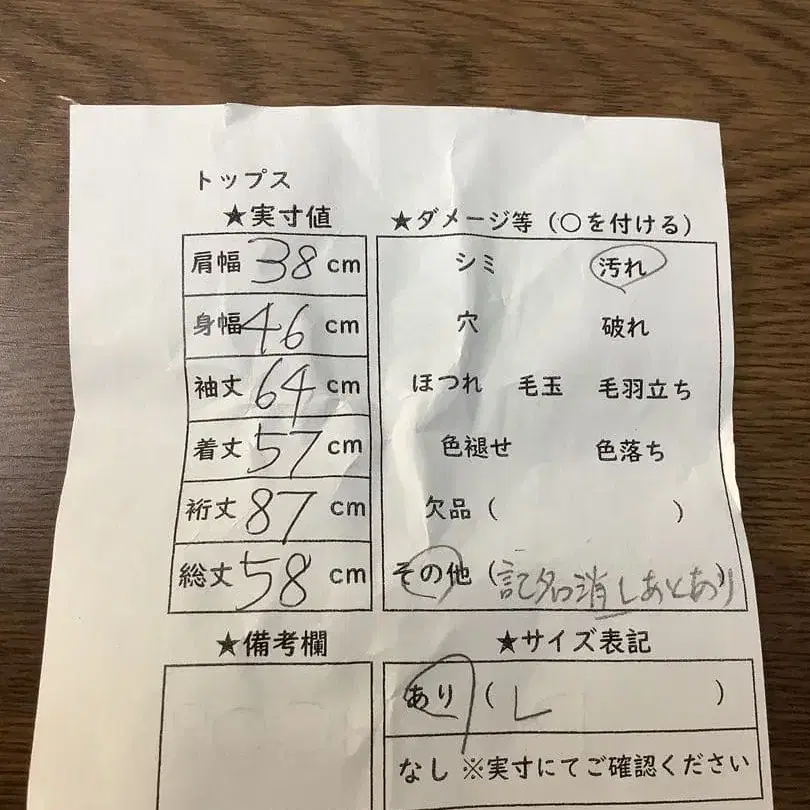 トップス
★実寸値
肩幅 38 cm
身幅 46 cm
袖丈 64 cm
着丈 57 cm
裄丈 87 cm
総丈 58 cm
★備考欄
★ダメージ等（○を付ける）
シミ 汚れ
穴 破れ
ほつれ 毛玉 毛羽立ち
色褪せ 色落ち
欠品（ ）
その他（記名消しあとあり）
★サイズ表記
あり（ L ）
なし ※実寸にてご確認ください